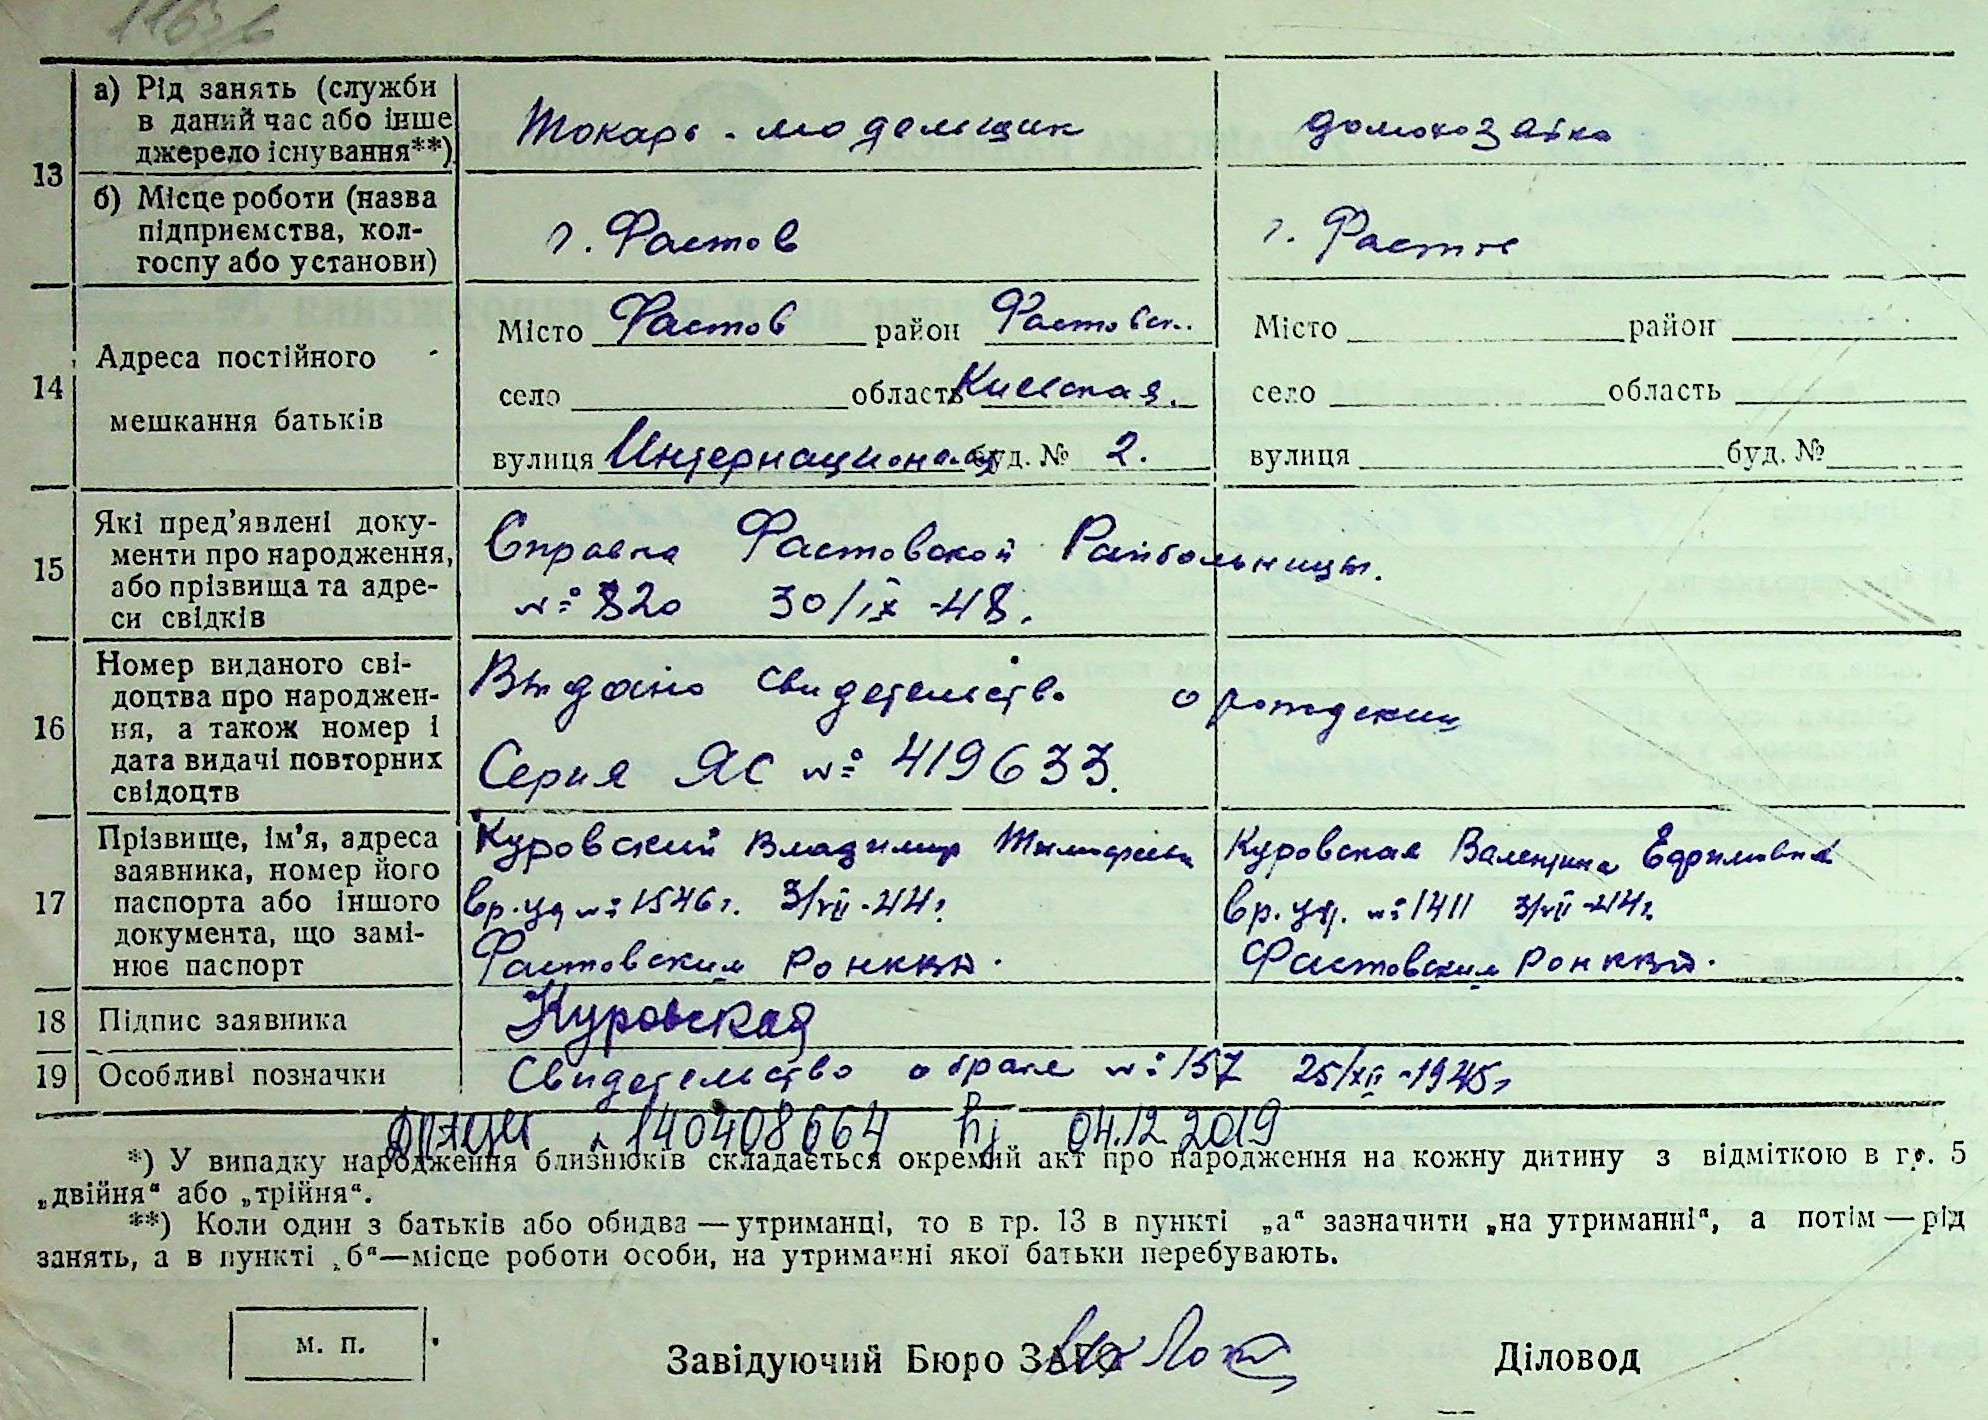 13
а) Рід занять (служби
в даний час або інше
джерело існування**)
Токарь-модельщик
домохозяйка
б) Місце роботи (назва
підприємства, кол-
госпу або установи)
г. Фастов
г. Фастов
14
Адреса постійного
мешкання батьків
Місто Фастов район Фастовск..
село область Киевская.
вулиця Интернационала буд. № 2.
Місто район
село область
вулиця буд. №
15
Які пред’явлені доку-
менти про народження,
або прізвища та адре-
си свідків
Справка Фастовской Райбольницы.
№ 820 30/IX-48.
16
Номер виданого сві-
доцтва про народжен-
ня, а також номер і
дата видачі повторних
свідоцтв
Выдано свидетельство о рождении
Серия ЯС № 419633.
17
Прізвище, ім’я, адреса
заявника, номер його
паспорта або іншого
документа, що замі-
нює паспорт
Куровский Владимир
вр. уд № 1546 г. 3/VII-44 г.
Фастовским РОНКВД.
Куровская Валентина Ефимовна
вр. уд. № 1411 3/VII-44 г.
Фастовским РОНКВД.
18
Підпис заявника
Куровская
19
Особливі позначки
Свидетельство о браке № 157 25/XII-1945 г
140408664 04.12.2019
*) У випадку народження близнюків складається окремий акт про народження на кожну дитину з відміткою в гр. 5
„двійня“ або „трійня“.
**) Коли один з батьків або обидва — утриманці, то в гр. 13 в пункті „а“ зазначити „на утриманні“, а потім — рід
занять, а в пункті „б“—місце роботи особи, на утриманні якої батьки перебувають.
м. п.
Завідуючий Бюро ЗАГС
Діловод